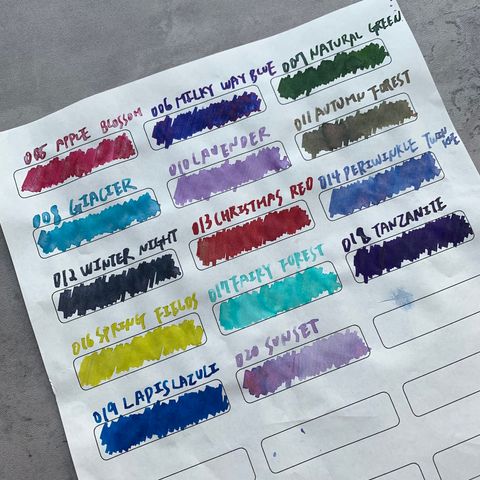 005 APPLE BLOSSOM
006 MILKY WAY BLUE
007 NATURAL GREEN
008 GLACIER
010 LAVENDER
011 AUTUMN FOREST
012 WINTER NIGHT
013 CHRISTMAS RED
014 PERIWINKLE
016 SPRING FIELDS
017 FAIRY FOREST
018 TANZANITE
019 LAPISLAZULI
020 SUNSET